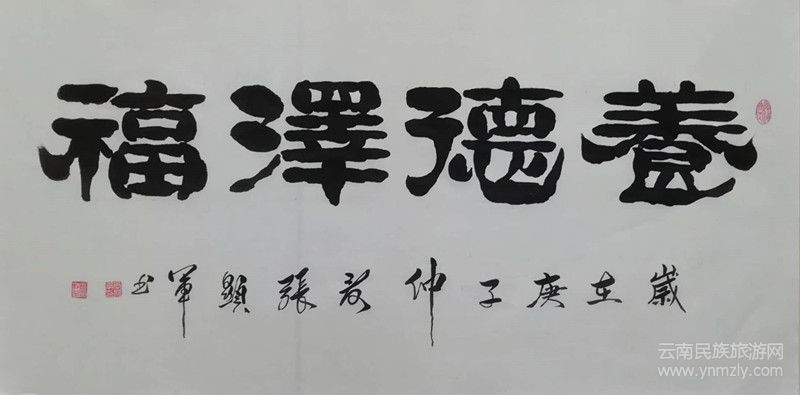 養德澤福
歲在庚子仲夏張顯軍书
云南民族旅游网
www.ynmzly.com